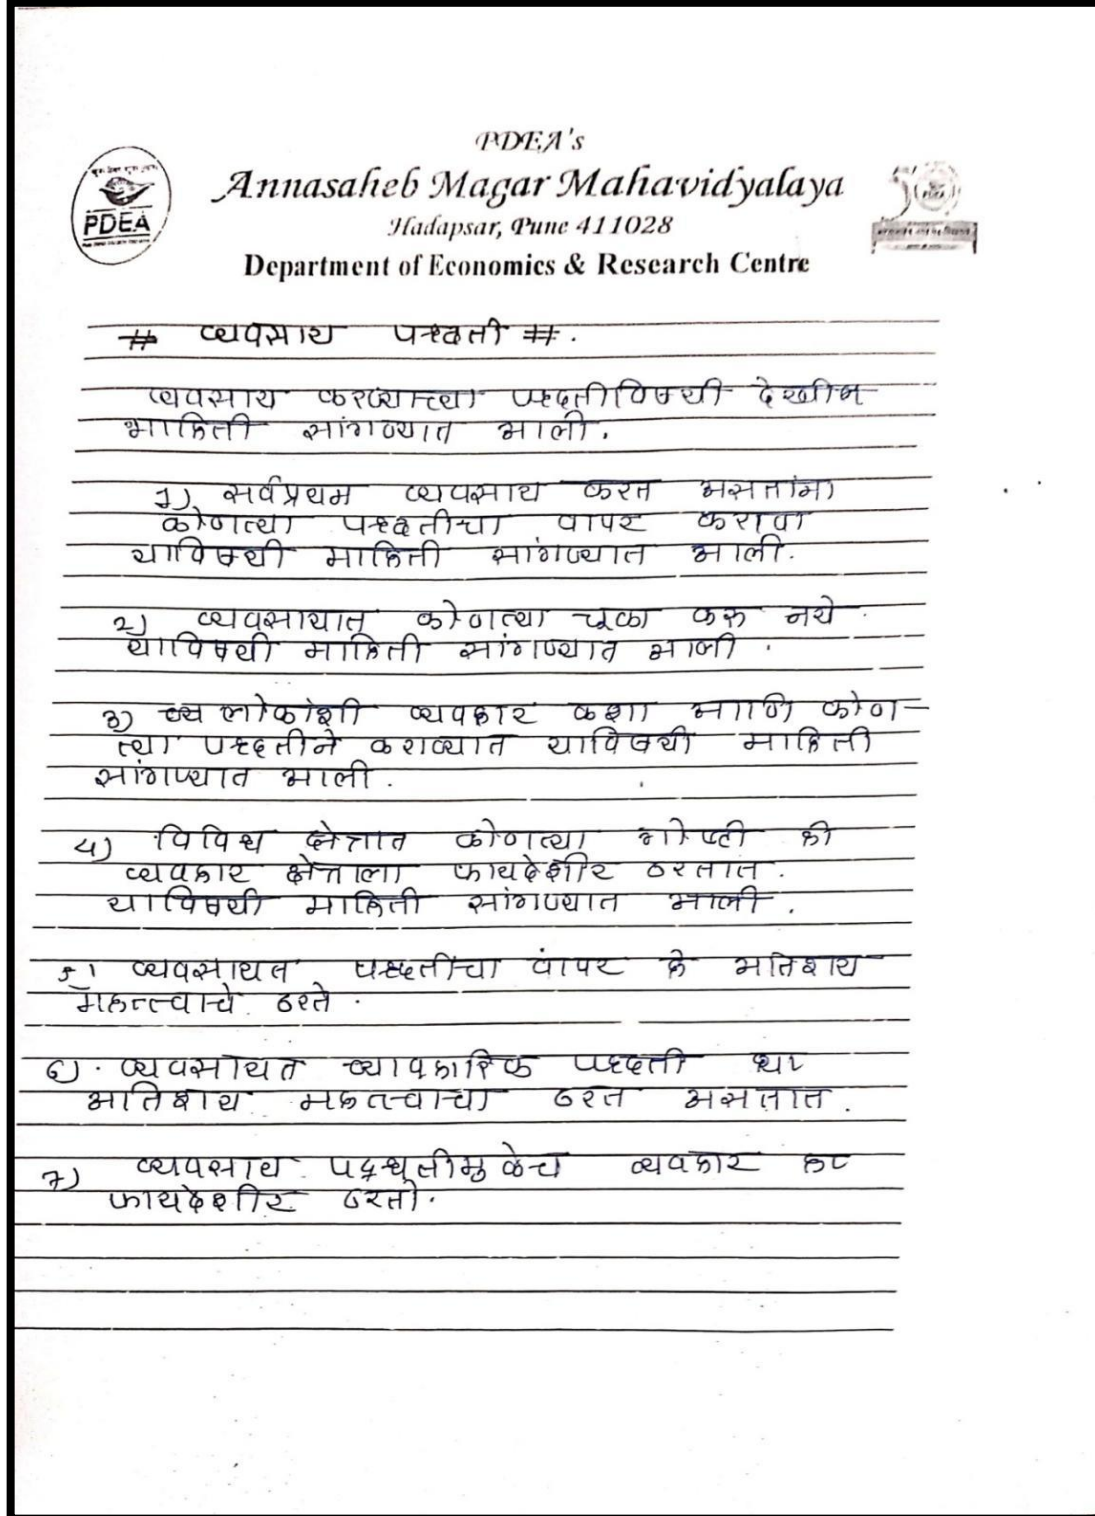 PDEA's
Annasaheb Magar Mahavidyalaya
Hadapsar, Pune 411028
Department of Economics & Research Centre
PDEA
# व्यवसाय पध्दती #.
व्यवसाय करण्याच्या पध्दतीविषयी देखील
माहिती सांगण्यात आली.
1) सर्वप्रथम व्यवसाय करत असतांना
कोणत्या पध्दतीचा वापर करावा
याविषयी माहिती सांगण्यात आली.
2) व्यवसायात कोणत्या चूका करू नये
याविषयी माहिती सांगण्यात आली.
3) लोकांशी व्यवहार कशा आणि कोण-
त्या पध्दतीने कराव्यात याविषयी माहिती
सांगण्यात आली.
4) विविध क्षेत्रात कोणत्या गोष्टी ही
व्यवहार क्षेत्राला फायदेशीर ठरतात.
याविषयी माहिती सांगण्यात आली.
5) व्यवसायत पध्दतीचा वांपर हे अतिशय
महत्त्वाचे ठरते.
6). व्यवसायत व्यावहारिक पध्दती ह्या
अतिशय महत्त्वाचा ठरत असतात.
7) व्यवसाय पद्धतीमुळेच व्यवहार हा
फायदेशीर ठरतो.